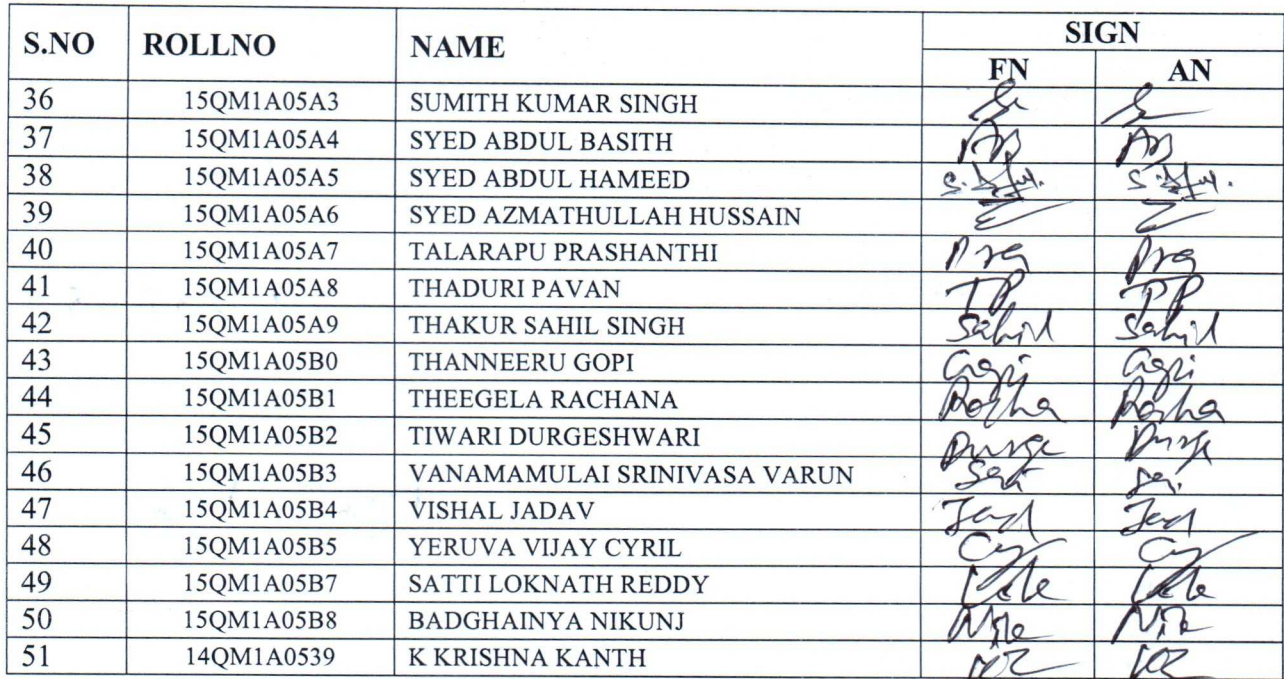 S.NO ROLLNO NAME SIGN
FN AN
36 15QM1A05A3 SUMITH KUMAR SINGH
37 15QM1A05A4 SYED ABDUL BASITH
38 15QM1A05A5 SYED ABDUL HAMEED
39 15QM1A05A6 SYED AZMATHULLAH HUSSAIN
40 15QM1A05A7 TALARAPU PRASHANTHI
41 15QM1A05A8 THADURI PAVAN TP TP
42 15QM1A05A9 THAKUR SAHIL SINGH Sahil Sahil
43 15QM1A05B0 THANNEERU GOPI Gopi Gopi
44 15QM1A05B1 THEEGELA RACHANA
45 15QM1A05B2 TIWARI DURGESHWARI
46 15QM1A05B3 VANAMAMULAI SRINIVASA VARUN
47 15QM1A05B4 VISHAL JADAV
48 15QM1A05B5 YERUVA VIJAY CYRIL
49 15QM1A05B7 SATTI LOKNATH REDDY
50 15QM1A05B8 BADGHAINYA NIKUNJ
51 14QM1A0539 K KRISHNA KANTH